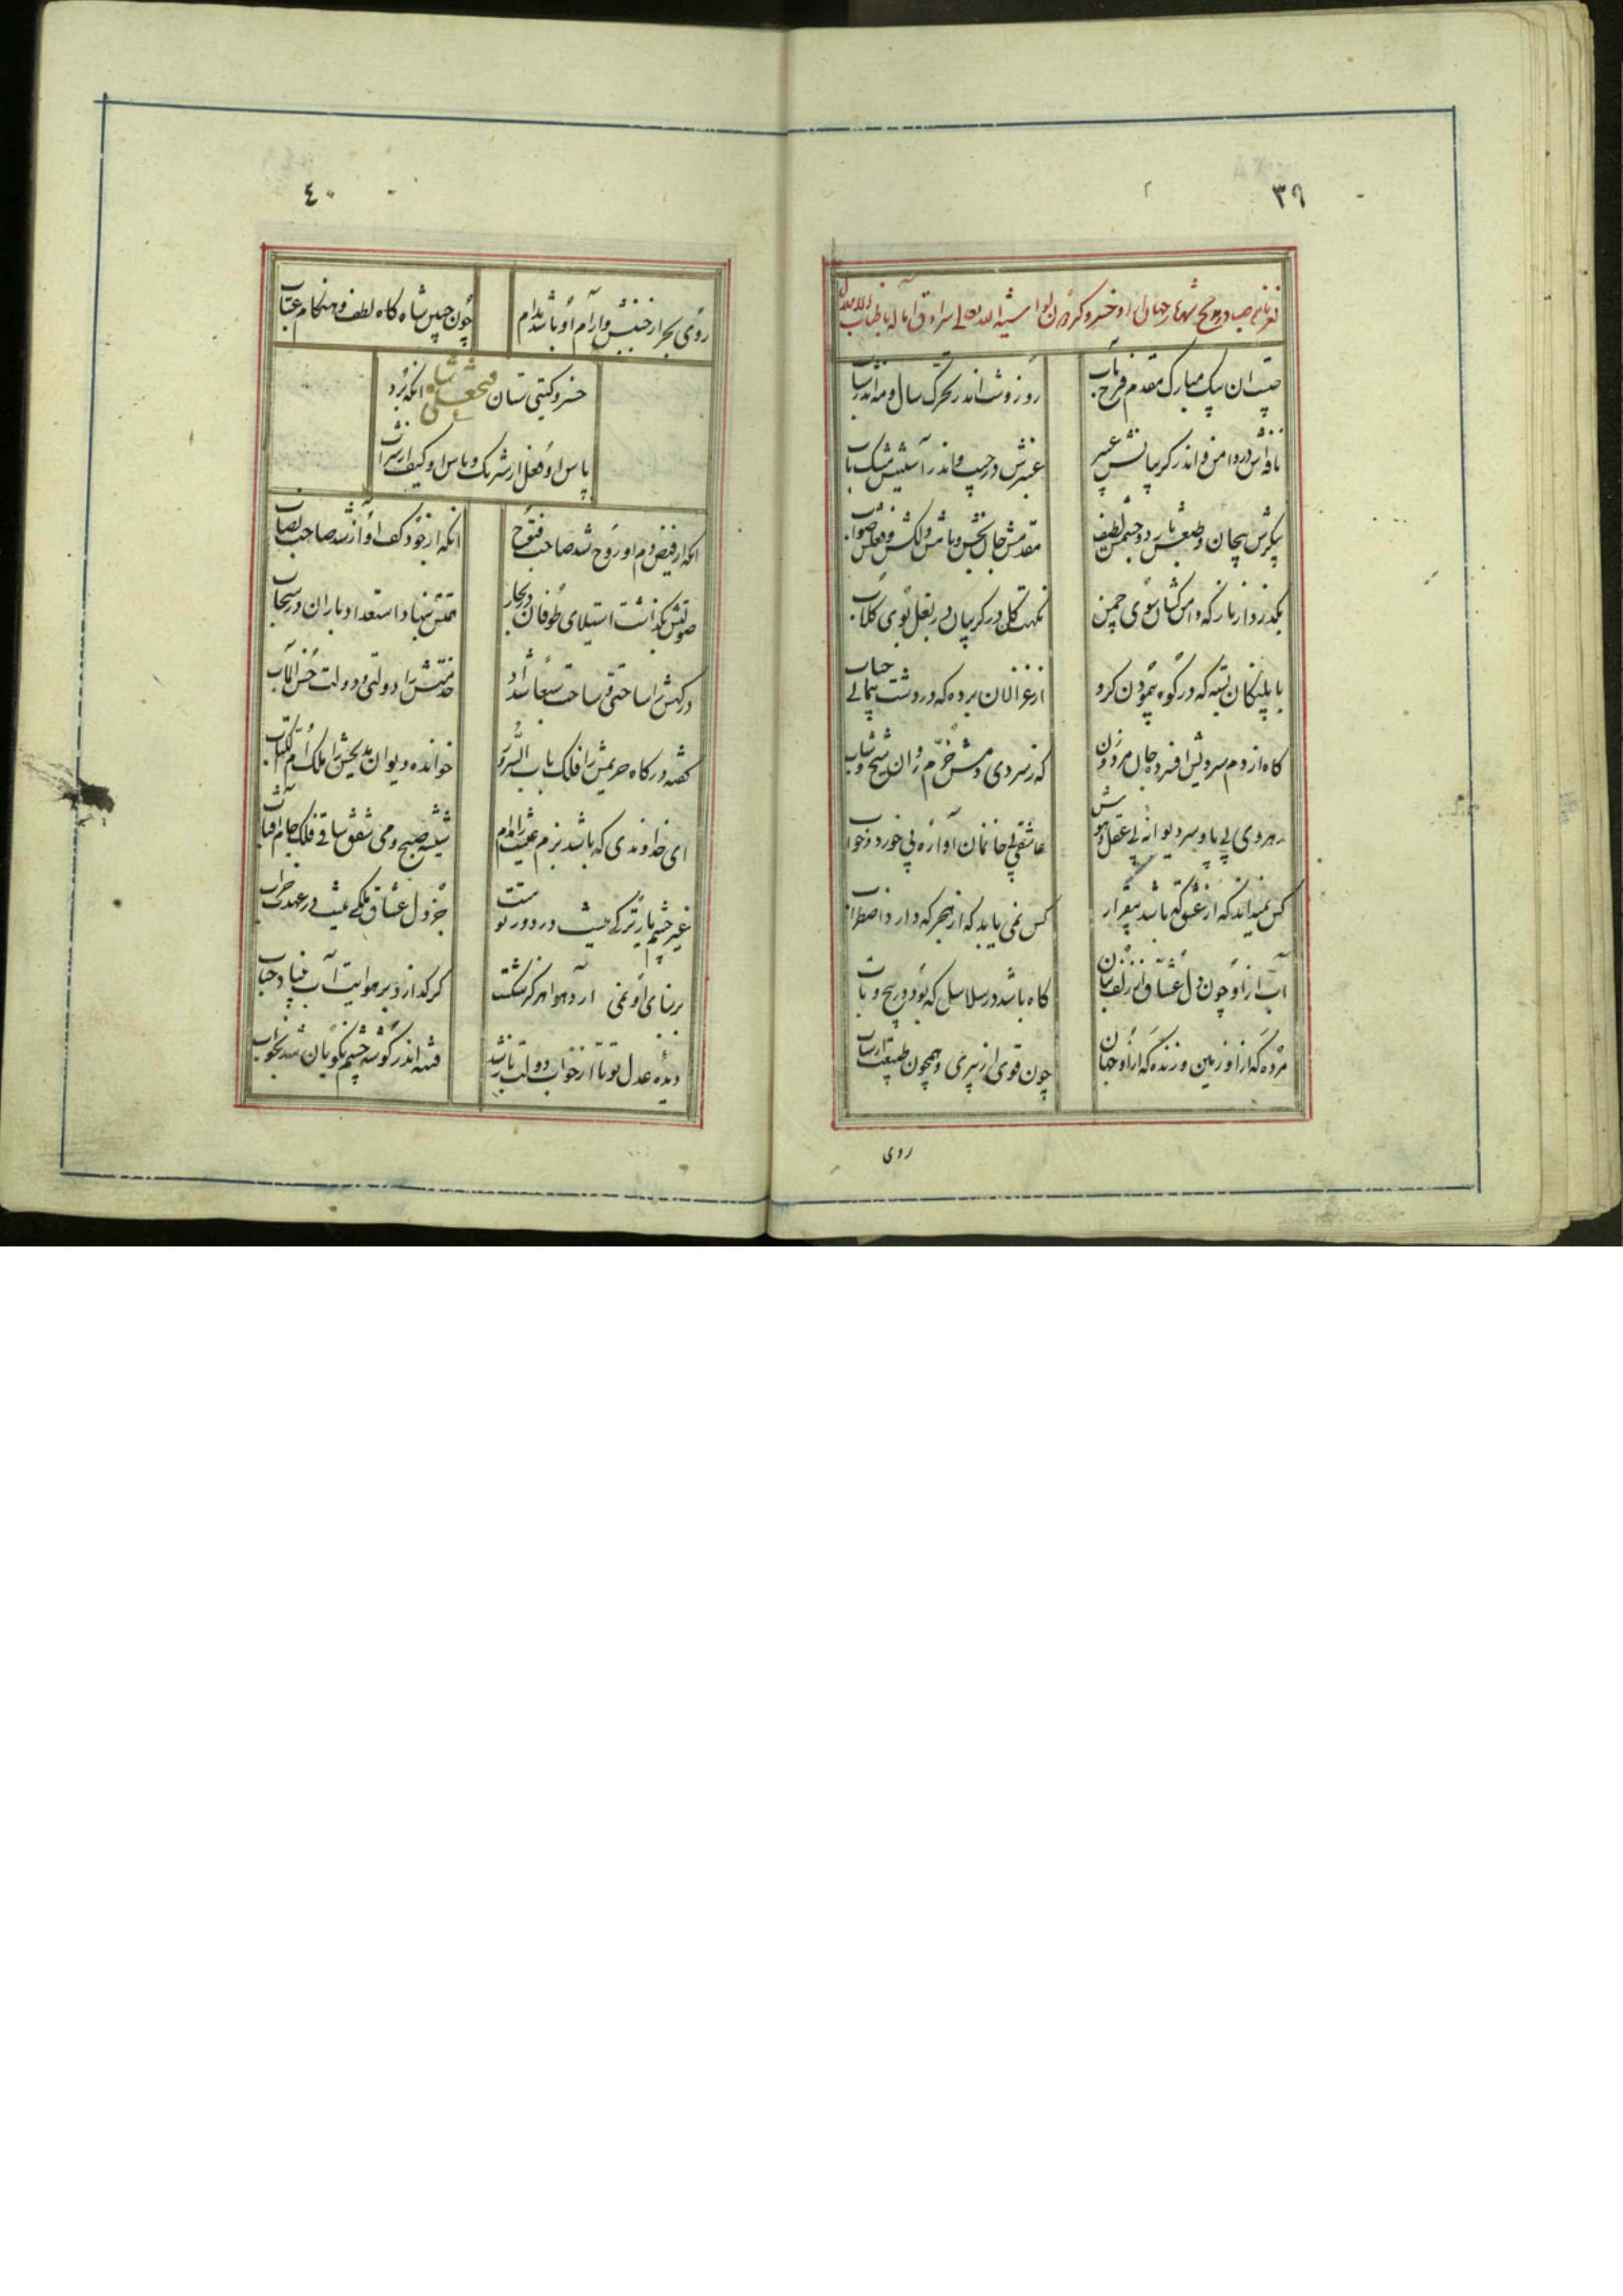 ٣٩
چیست ان پیک مبارک مقدم فرخ جناب
روز و شب اندر تحرک سال و مه اندر شتاب
نافه اش در دامن و اندر کریبانش عبیر
عنبرش در جیب و اندر آستینش مشکناب
پیکرش پیچان و طبعش بارد و جسمش لطیف
مقدمش جان بخش و بامش دلکش و فعلش صواب
بکذرد از ناز که دامن کشان سوی چمن
نکهت کل در کریبان در بغل بوی کلاب
با پلنکان بسته که در کوه پیمودن کرو
از غزالان برده که در دشت پیمائی
کاه از دم سردیش افسرده جان مرد و زن
که ز سردی دمش خرم روان شیخ و شاب
رهروی بی پا و سر دیوانه بی عقل و هوش
عاشقی بی خانمان آواره بی خورد و خواب
کس نمیداند که از عشق که باشد بیقرار
کس نمی یابد که از هجر که دارد اضطراب
آب از او چون دل عشاق از زلف بتان
کاه باشد در سلاسل که بود در پیچ و تاب
مرده که از او زمین و زنده که از او جهان
چون قوی از پیری و همچون طبیعت از شباب
روی
٤٠
روی بحر از جنبش و آرام او باشد مدام
چون جبین شاه کاه لطف و هنکام عتاب
خسرو کیتی ستان فتحعلی شاه انکه برد
پاس او فعل از شرنک و باس او کیف از شراب
انکه از فیض دم او روح شد صاحب فتوح
انکه از جود کف او آز شد صاحب نصاب
صولتش نکذاشت استیلای طوفان در بحار
همتش ننهاد استعداد باران در سحاب
درکهش را ساحتی و ساحت سبعا شداد
خدمتش را دولتی و دولت حسن المآب
کفته درکاه حریمش را فلک باب السرور
خوانده دیوان مدیحش را ملک ام الکتاب
ای خداوندی که باشد بزم عیشت را مدام
شیشه صبح و می شفق ساقی فلک جام آفتاب
غیر چشم یار ترکی نیست در دور تو مست
جز دل عشاق ملکی نیست در عهدت خراب
بر نتابی او نمی آرد هوا هرکز شکست
کر کذارد بر هوایت آب بنیاد حباب
دیده عدل تو تا از خواب دولت باز شد
فتنه اندر کوشه چشم نکویان شد بخواب